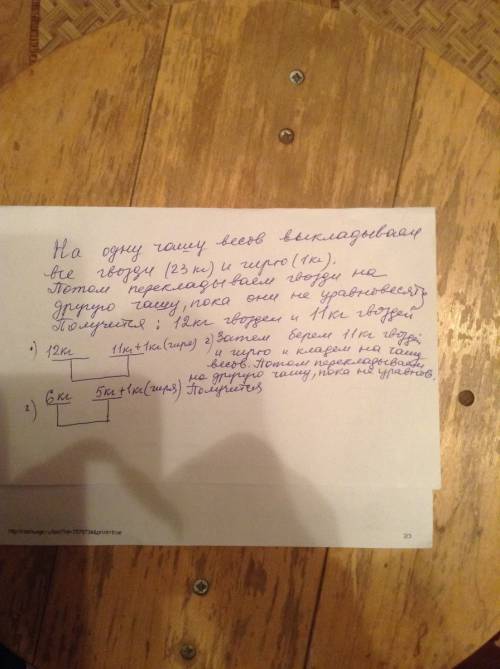 На одну чашу весов выкладываем
все гвозди (23 кг) и гирю (1кг).
Потом перекладываем гвозди на
другую чашу, пока они не уравновесят
Получится: 12кг гвоздей и 11кг гвоздей
1) 12кг 11кг+1кг(гиря) 2) Затем берем 11кг гвоздей
и гирю и кладем на чашу
весов. Потом перекладываем
на другую чашу, пока не уравнов.
2) 6кг 5кг+1кг(гиря) Получится
23